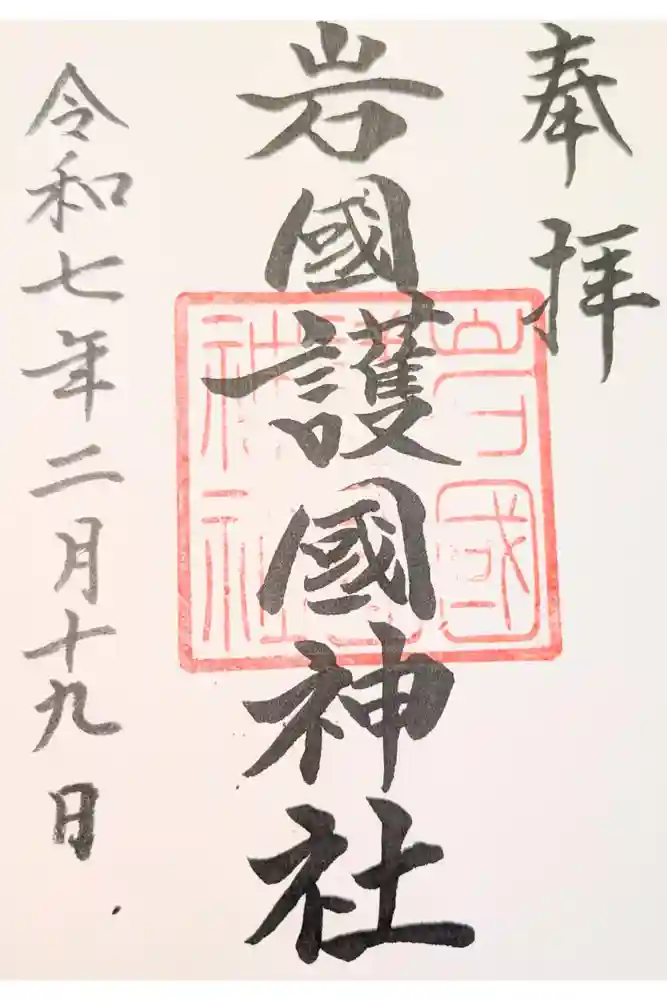 奉拝
岩國護國神社
岩國護國神社
令和七年二月十九日